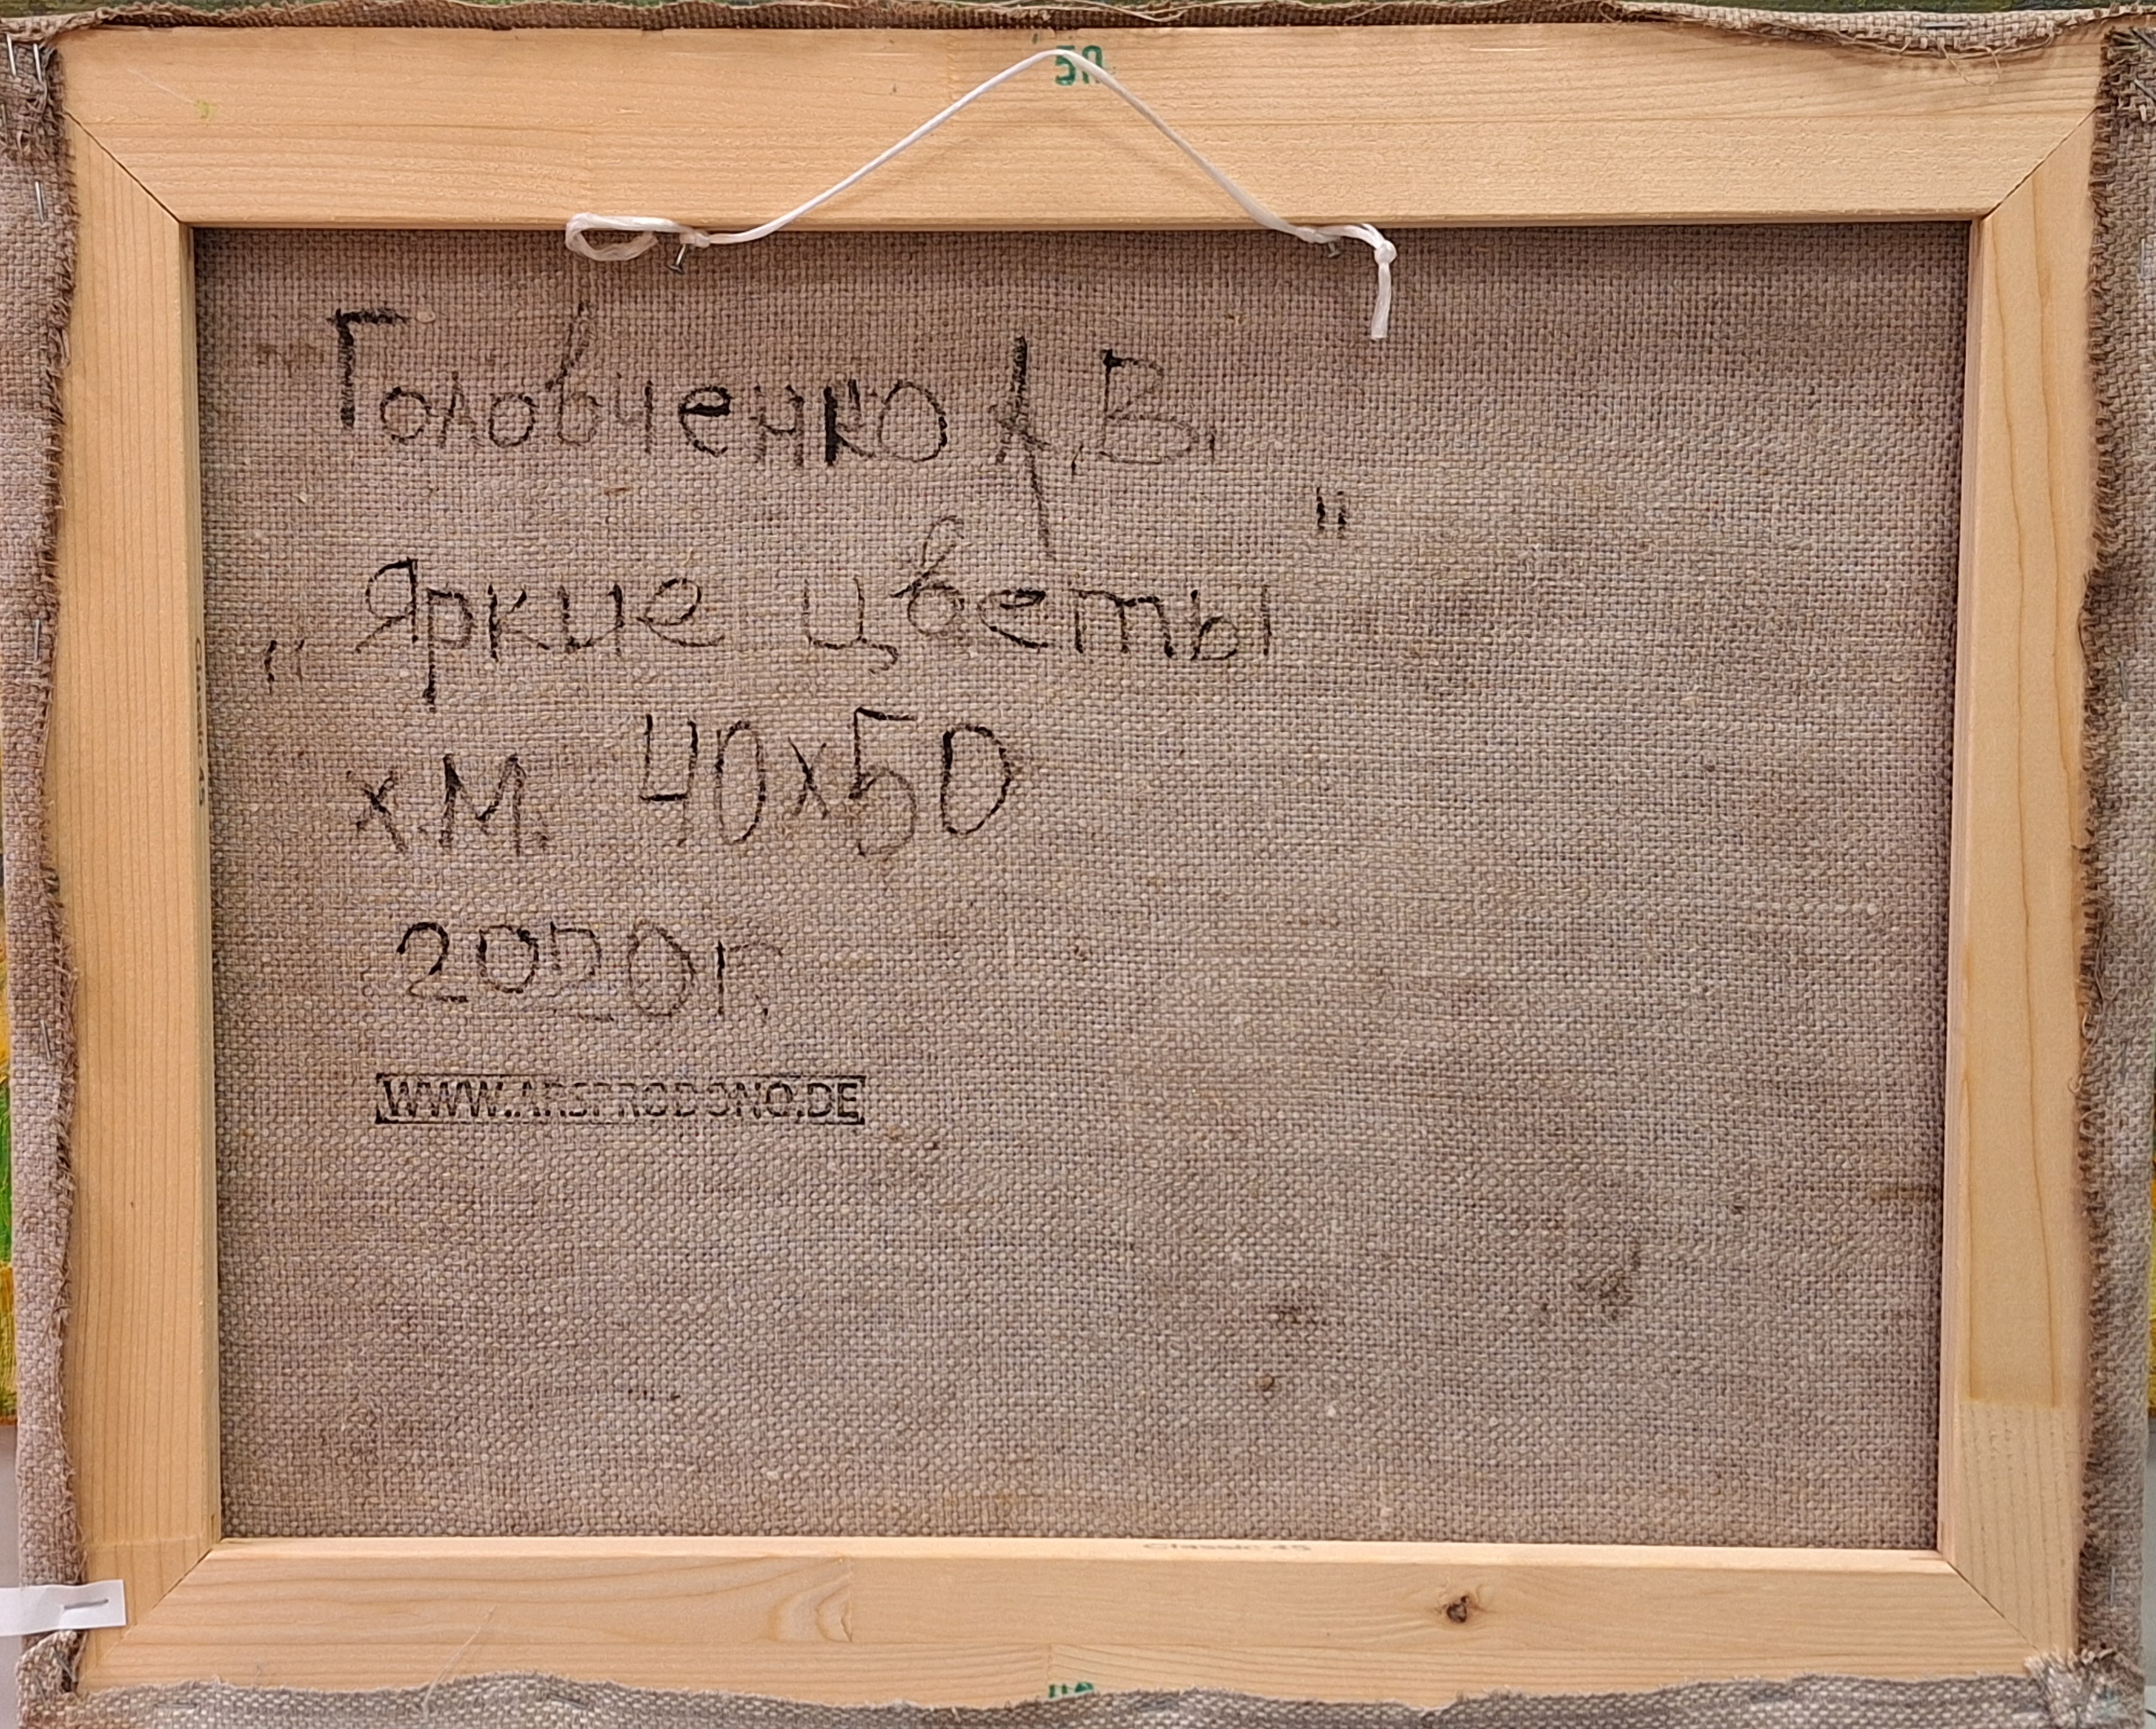 50
Головченко А.В.
„Яркие цветы"
х.м. 40х50
2020г.
WWW.ARSPRODONO.DE
Classic 45